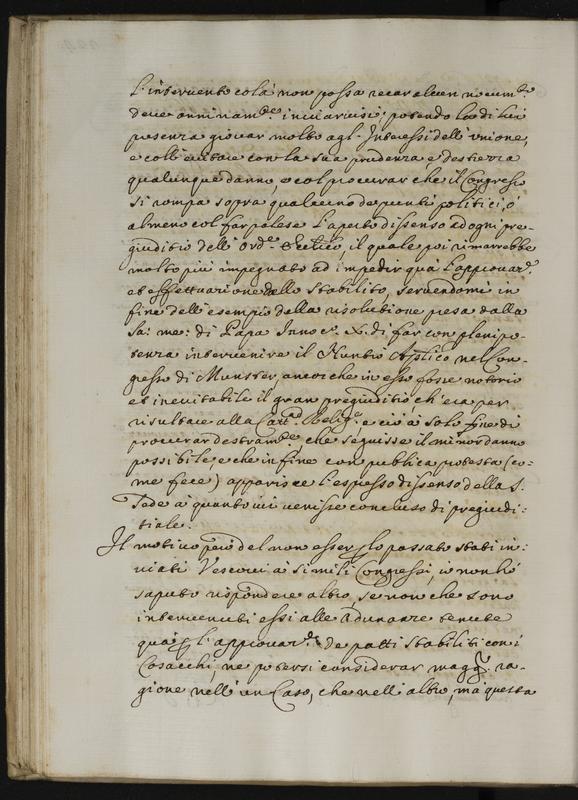 l'intervento colà non possa recar alcun nocum.to
deve anninam.te inviarvisi; potendo la di lui
presenza giovar molto agl'Interessi dell'unione,
e coll'evitare con la sua prudenza e destrezza
qualunque danno, e col procurar che il Congresso
si rompa sopra qualcuno de punti politici, ò
almeno col far palese l'aperto dissenso ad ogni pre-
giuditio dell'Ord.e Eccl.co, il quale poi rimarrebbe
molto più impegnato ad impedir quà l'approvar.e
et effettuarione dello stabilito, servendomi in
fine dell'esempio della risolutione presa dalla
Sa: me: di Papa Innoc.o X. di far con plenipo-
tenza intervenire il Nuntio Ap.lico nel Con-
gresso di Munster, ancorche in esso fosse notorio
et inevitabile il gran pregiuditio, ch'era per
risultare alla Catt.ca Relig.e e ciò à solo fine di
procurar destram.te che seguisse il minor danno
possibile, e che in fine con publica potestà (co-
me fece) apparisce l'espresso dissenso della S.
Sede à quanto ivi venisse concluso di pregiudi-
tiale.
Il motivo però del non esser per lo passato stati in-
viati Vescovi à simili Congressi, io non hò
saputo rispondere altro, se non che sono
intervenuti essi alle Adunanze tenute
quà per l'approvar.e de patti stabiliti con i
Cosacchi, ne potersi considerar magg.r ra-
gione nell'un Caso, che nell'altro, mà questa